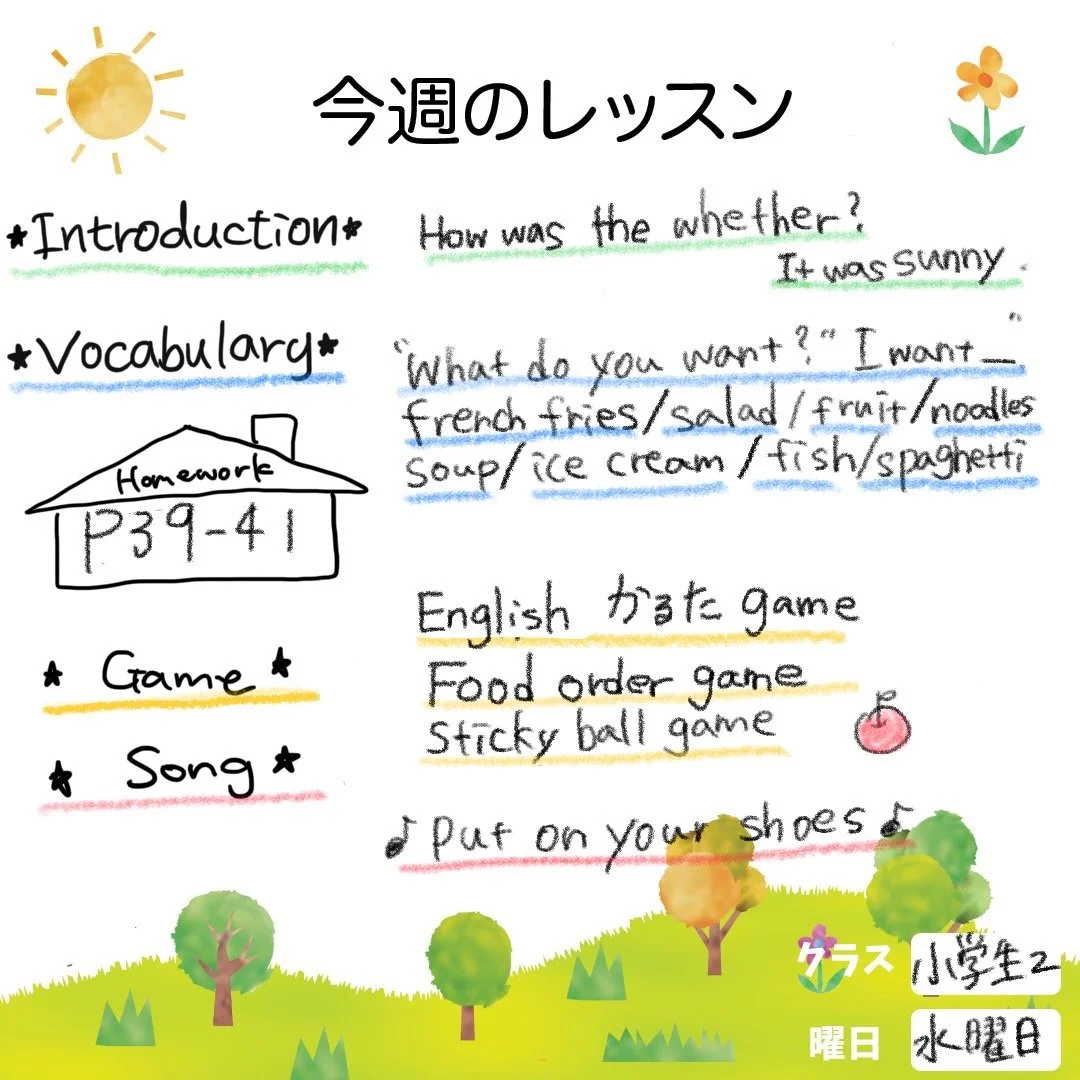 今週のレッスン
★Introduction★
How was the whether?
It was sunny.
★Vocabulary★
"What do you want?" I want _"
french fries/salad/fruit/noodles
soup/ice cream/fish/spaghetti
Homework
P39-41
★ Game ★
English かるた game
Food order game
Sticky ball game
★ Song ★
♪ Put on your shoes ♪
クラス 小学生2
曜日 水曜日